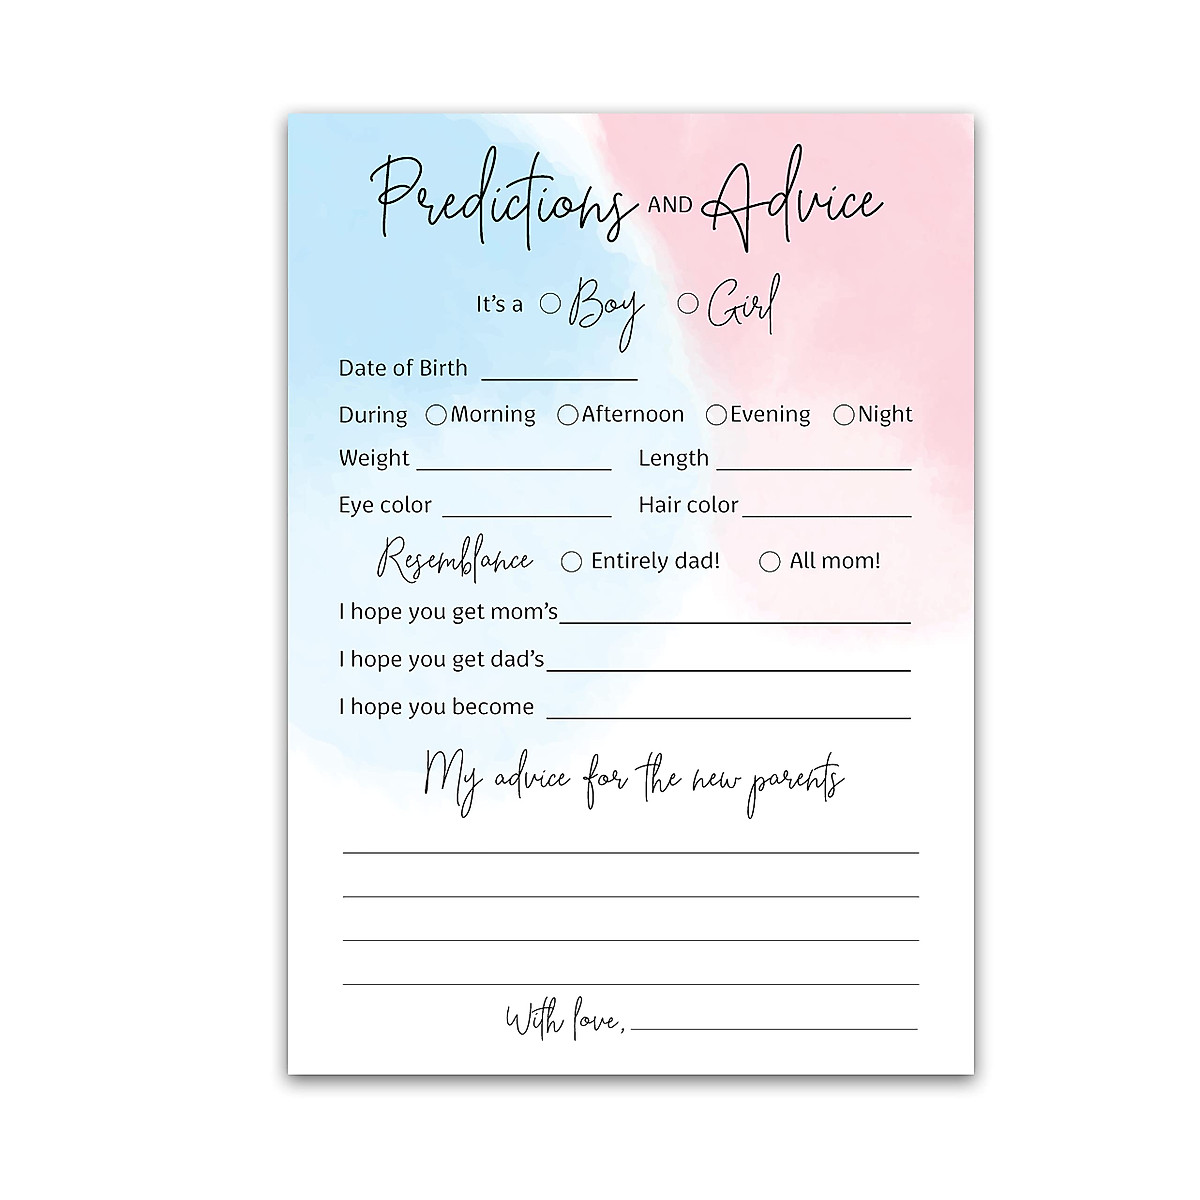 Predictions AND Advice
It's a Boy Girl
Date of Birth
During Morning Afternoon Evening Night
Weight Length
Eye color Hair color
Resemblance Entirely dad! All mom!
I hope you get mom's
I hope you get dad's
I hope you become
My advice for the new parents
With love,